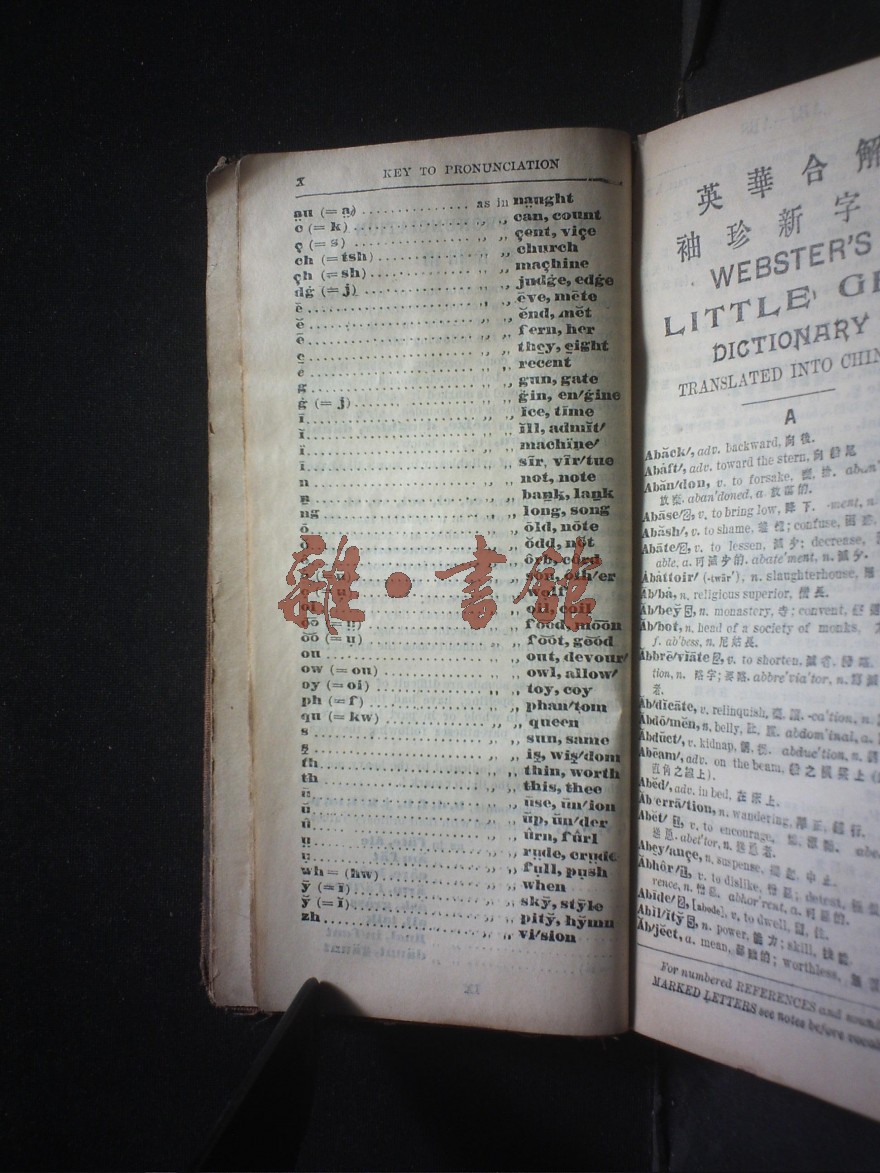 x KEY TO PRONUNCIATION
a̤u (= a̤) as in na̤ught
c (= k) „ „ can, count
ç (= s) „ „ çent, viçe
ch (= tsh) „ „ church
çh (= sh) „ „ maçhine
dġ (= j) „ „ judġe, edġe
ē „ „ ēve, mēte
ĕ „ „ ĕnd, mĕt
„ „ fern, her
„ „ they, eight
„ „ recent
g „ „ gun, gate
ġ (= j) „ „ ġin, en/ġine
ī „ „ īce, tīme
ĭ „ „ ĭll, admĭt/
ï „ „ machïne/
„ „ sīr, vīr/tue
n „ „ not, note
ṉ „ „ baṉk, laṉk
ng „ „ long, song
ō „ „ ōld, nōte
„ „ ŏdd, nŏt
„ „ ôrb, côrd
„ „ son, oth/er
„ „ wolf
oi „ „ oil, coil
o͞o „ „ fo͞od, mo͞on
o͝o (= ụ) „ „ fo͝ot, go͝od
ou „ „ out, devour/
ow (= ou) „ „ owl, allow/
oy (= oi) „ „ toy, coy
ph (= f) „ „ phan/tom
qu (= kw) „ „ queen
s „ „ sun, same
s̱ „ „ is̱, wis̱/dom
th „ „ thin, worth
th „ „ this, thee
ū „ „ ūse, ūn/ion
ŭ „ „ ŭp, ŭn/der
û „ „ ûrn, fûrl
ṳ „ „ rṳde, crṳde
ụ „ „ fụll, pụsh
wh = (hw) „ „ when
ȳ (= ī) „ „ skȳ, stȳle
y̆ (= ĭ) „ „ pity̆, hy̆mn
zh „ „ vi/sion
雜·書館
英華合解
袖珍新字
WEBSTER'S
LITTLE GE
DICTIONARY
TRANSLATED INTO CHIN
A
Abăck/, adv. backward, 向後.
Abȧft/, adv. toward the stern, 向船尾
Abăn/don, v. to forsake,
aban'doned, a. 放蕩的.
Abāse/, v. to bring low, 降下. -ment, n.
Abăsh/, v. to shame, ; confuse,
Abāte/, v. to lessen, 減少; decrease,
able, a. 可減少的. abate'ment, n. 減少.
Ȧbȧttoir/ (-twär'), n. slaughterhouse,
Ăb/bȧ, n. religious superior, 僧長.
Ăb/bey̆, n. monastery, 寺; convent,
Ăb/bot, n. head of a society of monks.
f. ab'bess, n. 尼姑長.
Ăbbrē/viāte, v. to shorten,
tion, n. abbre'via'tor, n.
者.
Ăb/dĭcāte, v. relinquish, -ca'tion, n.
Ăbdō/mĕn, n. belly, 肚, abdom'inal, a.
Ăbdŭct/, v. kidnap, abduc'tion, n.
Abēam/, adv. on the beam,
Abĕd/, adv. in bed, 在床上.
Ăb'errā/tion, n. wandering,
Abĕt/, v. to encourage,
abet'tor, n.
Abey/ançe, n. suspense, 中止.
Ăbhôr/, v. to dislike, ; detest,
rence, n. abhor'rent, a.
Abīde/, [abode], v. to dwell, 居, 住.
Abĭl/ĭty̆, n. power, 能力; skill,
Ăb/jĕct, a. mean, ; worthless,
For numbered REFERENCES and sound
MARKED LETTERS see notes before